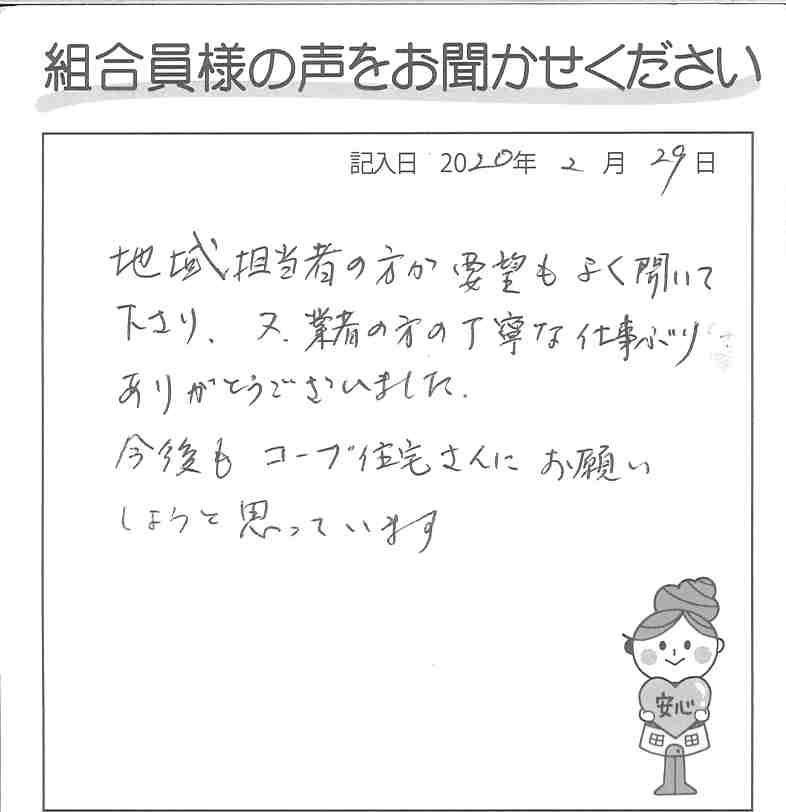 組合員様の声をお聞かせください
記入日 2020年 2月 29日
地域担当者の方が要望もよく聞いて
下さり、又、業者の方の丁寧な仕事ぶり
ありがとうございました。
今後も コープ住宅さんに お願い
しようと思っています
安心